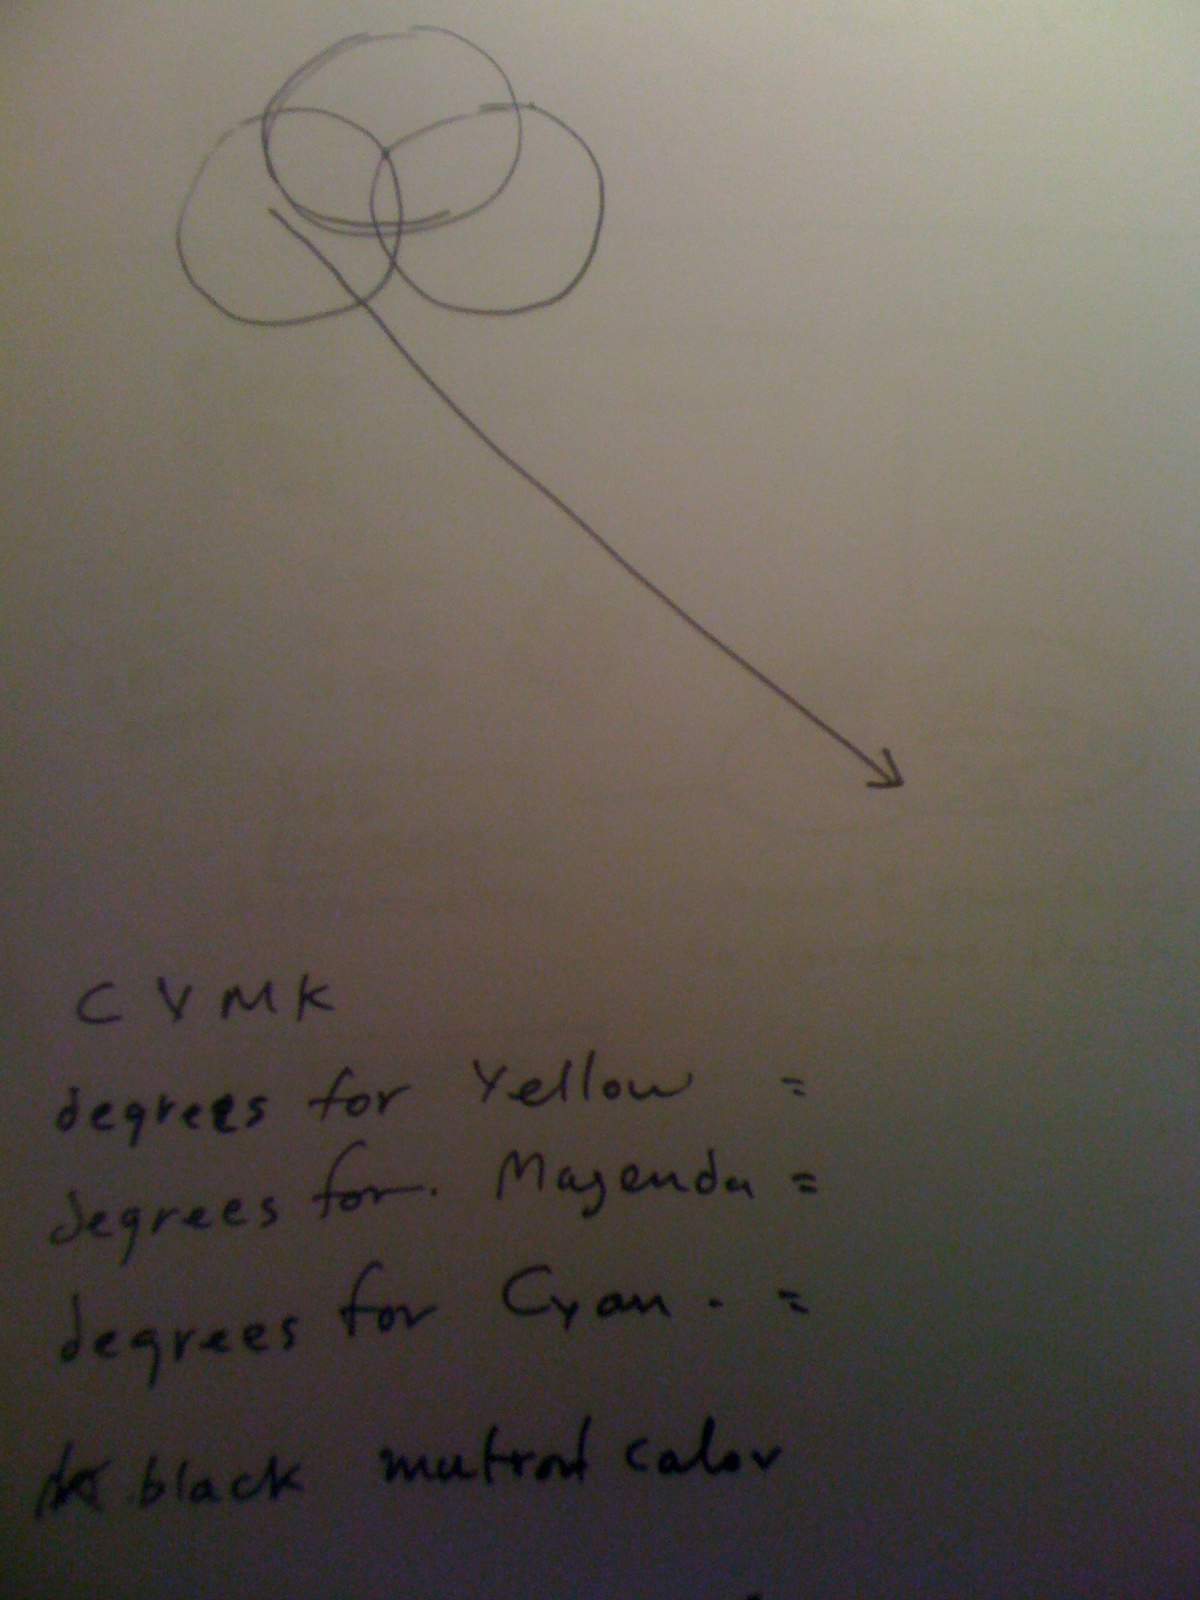 C Y M K
degrees for Yellow =
degrees for. Magenda =
degrees for Cyan. =
black color